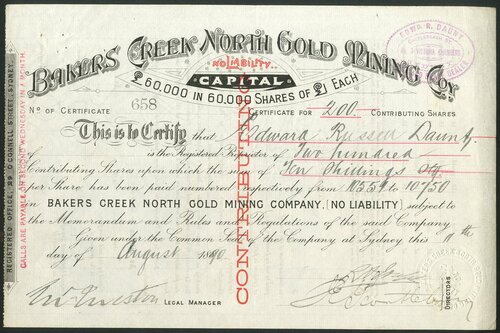 BAKERS CREEK NORTH GOLD MINING COY.
NO LIABILITY.
CAPITAL
£60,000 IN 60,000 SHARES OF £1 EACH
EDWD R. DAUNT
No OF CERTIFICATE 658 CERTIFICATE FOR 200 CONTRIBUTING SHARES
This is to Certify that Edward Russell Daunt
is the Registered Proprietor of Two hundred
Contributing Shares upon which the sum of Ten Shillings
per Share has been paid numbered respectively from 10551 to 10750
in BAKERS CREEK NORTH GOLD MINING COMPANY, (NO LIABILITY) subject to
the Memorandum and Rules and Regulations of the said Company
Given under the Common Seal of the Company at Sydney this 10th
day of August 1890
LEGAL MANAGER
DIRECTORS
CONTRIBUTING
REGISTERED OFFICE, O'CONNELL STREET, SYDNEY.
CALLS ARE PAYABLE ON SECOND WEDNESDAY IN A MONTH.